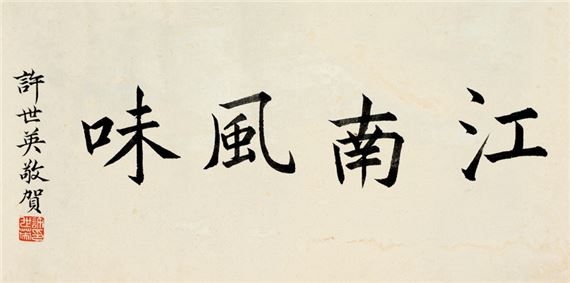 江南風味
許世英敬賀